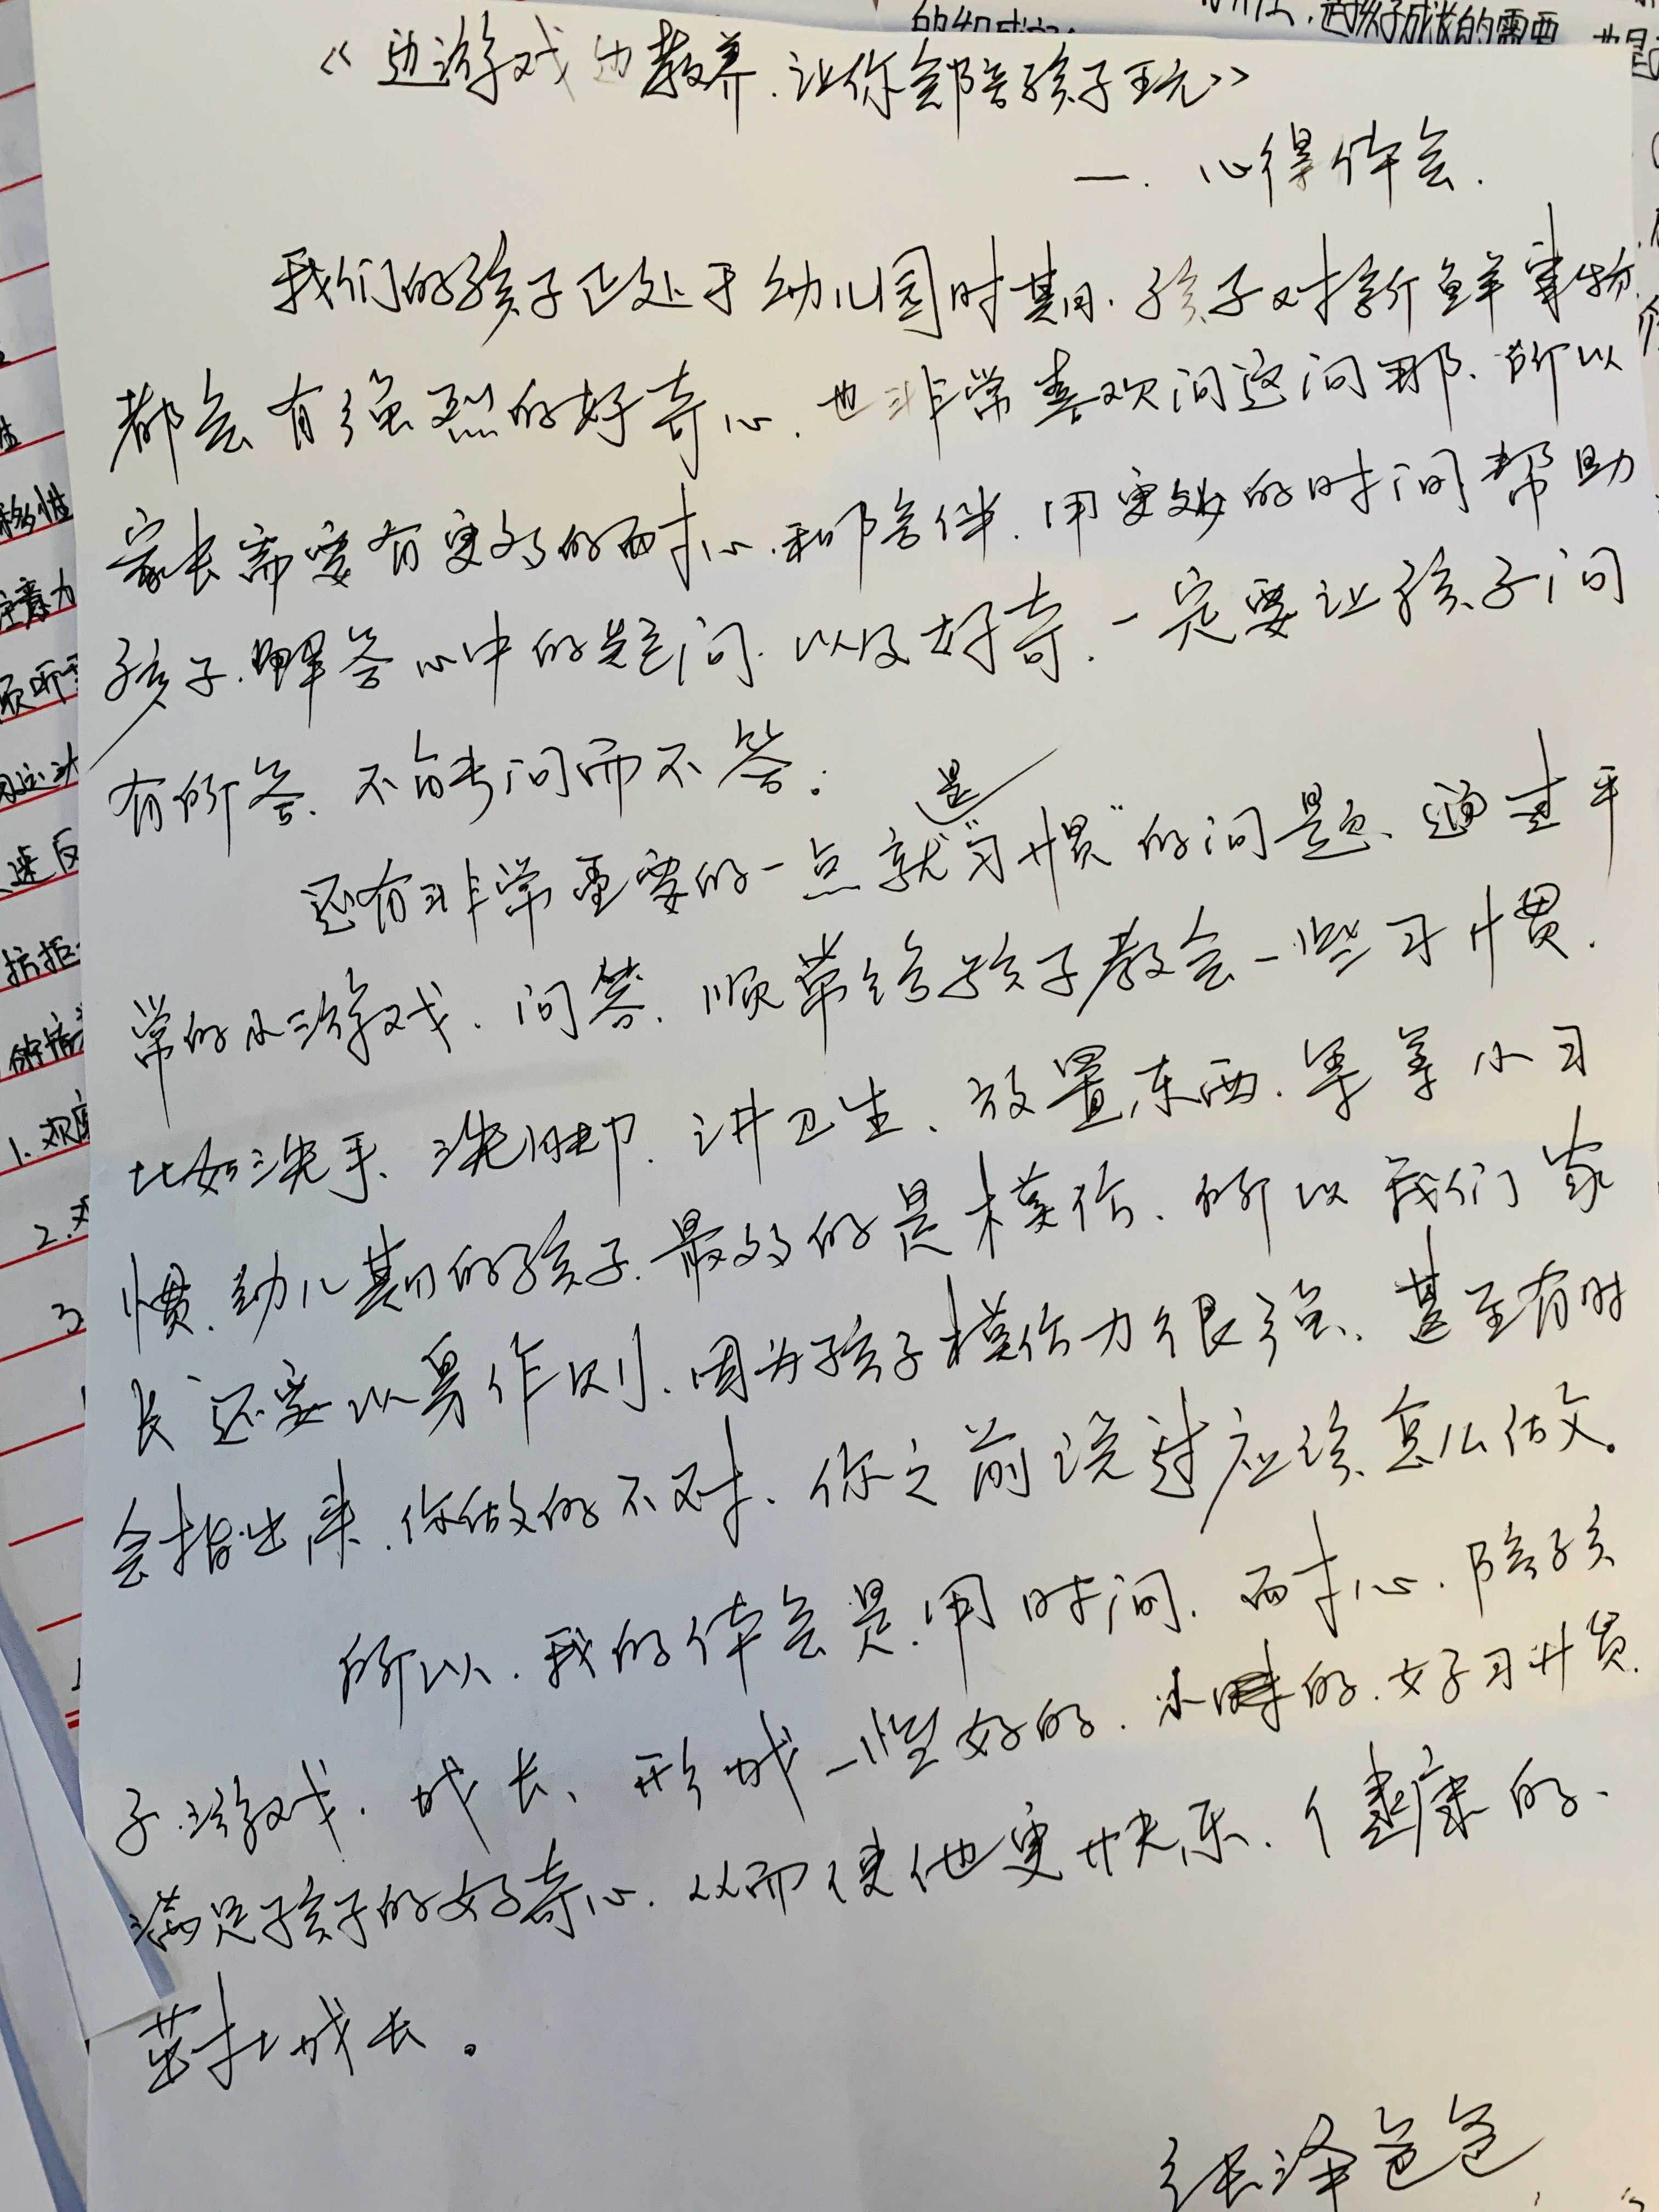 《边游戏边教养.让你会陪孩子玩》
一. 心得体会.
我们的孩子正处于幼儿园时期.孩子对新鲜事物.
都会有强烈的好奇心.也非常喜欢问这问那.所以
家长需要有更多的耐心.和陪伴.用更多的时间帮助
孩子.解答心中的疑问.以及好奇.一定要让孩子问
有所答、不能问而不答.
还有非常重要的一点就是"习惯"的问题、通过平
常的小游戏.问答.顺带给孩子教会一些习惯.
比如洗手、洗脚.讲卫生、放置东西.等等小习
惯.幼儿期的孩子.最多的是模仿、所以我们家
长还要以身作则.因为孩子模仿力很强、甚至有时
会指出来.你做的不对、你之前说过应该怎么做。
所以.我的体会是.用时间.耐心.陪孩
子.游戏.成长、形成一些好的.小的.好习惯.
满足孩子的好奇心.从而使他更快乐.健康的、
茁壮成长。
张泽爸爸
的组成部
是孩子成长的需要
也是
移性
注意力
速反
抗拒
1.观
2.
3